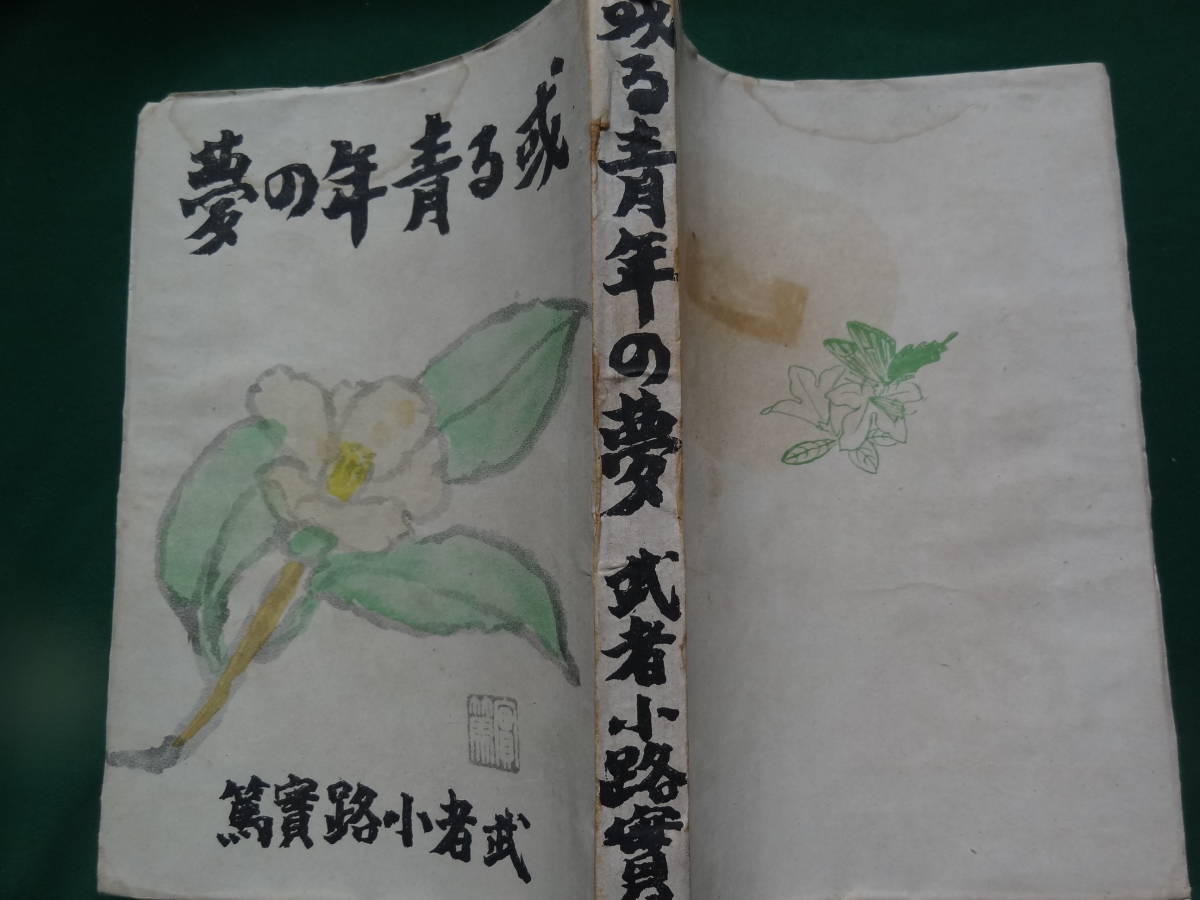 或る青年の夢
武者小路實篤
實篤
或る青年の夢 武者小路實